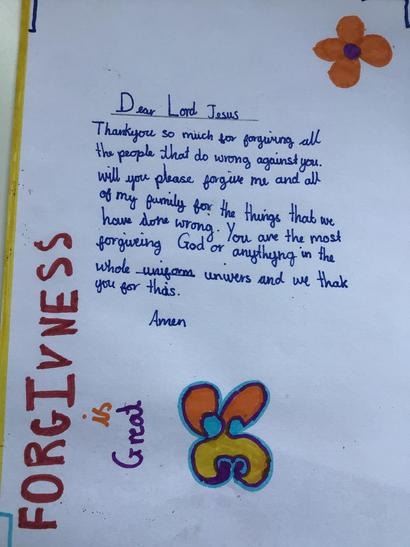 Dear Lord Jesus
Thankyou so much for forgiving all
the people that do wrong against you.
will you please forgive me and all
of my family for the things that we
have done wrong. You are the most
forgiveing God or anythyng in the
whole uniform unwers and we thak
you for thas.
Amen
FORGIVNESS
is
Great